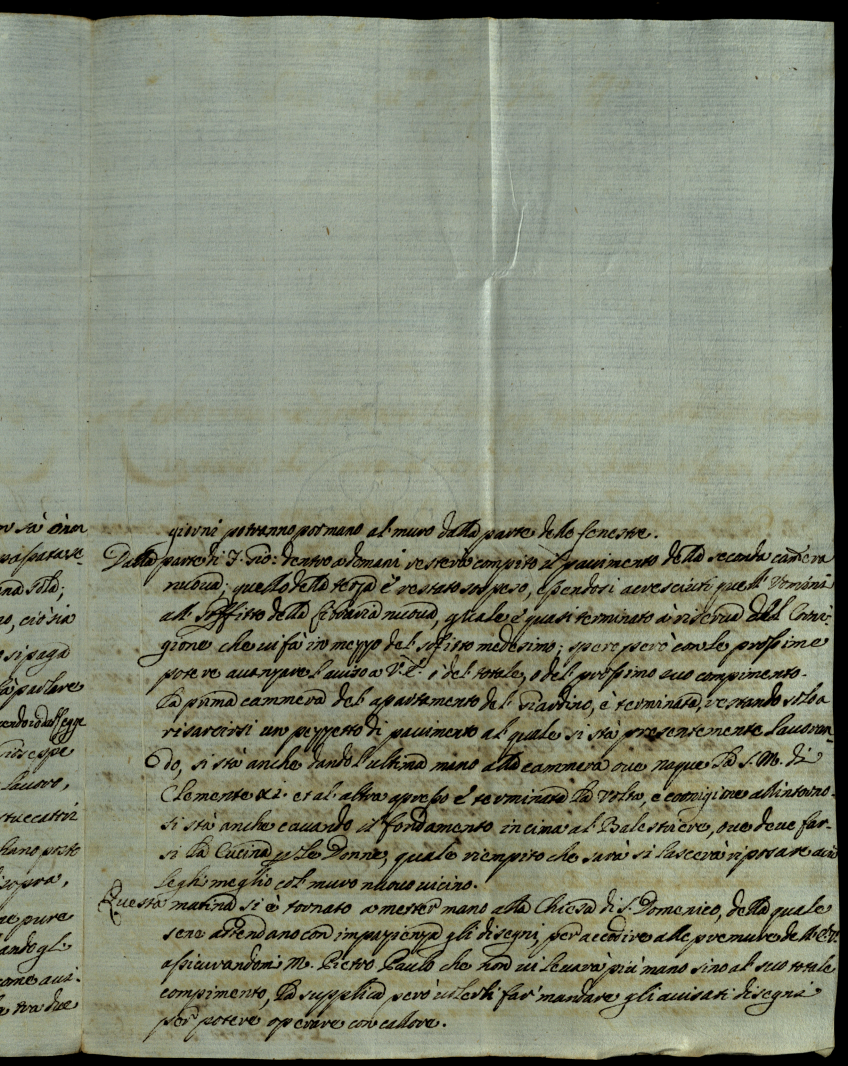 giorni potranno por mano al muro dalla parte delle fenestre.
Dalla parte di S. Gio: dentro a domani resterà compito il pavimento della seconda camera
nuova; quello della terza è restato sospeso, essendosi accresciuti quelli Uomini
all Soffitto della Libraria nuova, quale è quasi terminato à riserva del Corni-
gione che vi fà in mezzo del soffitto medesimo; spero però con le prossime
potere avanzare l'aviso a V.E. ò del totale, o del prossimo suo compimento.
La prima cammera del apartamento del Giardino, è terminata, restando solo a
risarcirsi un pezzetto di pavimento al quale si stà presentemente lavoran-
do, si stà anche dando l'ultima mano alla cammera ove naque la S. M. di
Clemente XI. et al altra apresso è terminata la Volta, e cornigione all'intorno.
si stà anche cavando il fondamento in cima al Balestriere, ove deve far-
si la Cucina p le Donne, quale riempito che sarà si lascerà riposare acciò
leghi meglio col muro nuovo vicino.
Questa matina si è tornato a metter mano alla Chiesa di S. Domenico, della quale
sene attendano con impazienza gli disegni, per accudire alle premure de
assicurandomi M. Pietro Paulo che non vi leverà più mano sino al suo totale
compimento, la supplico però volerli far mandare gli avisati disegni
per potere operare con callore.
ana sola;
no, ciò sia
o si paga
à parlare
Giuseppe
lavoro,
stuccatori
siano poste
sopra,
e pure
ando gl.
come avi-
tra due